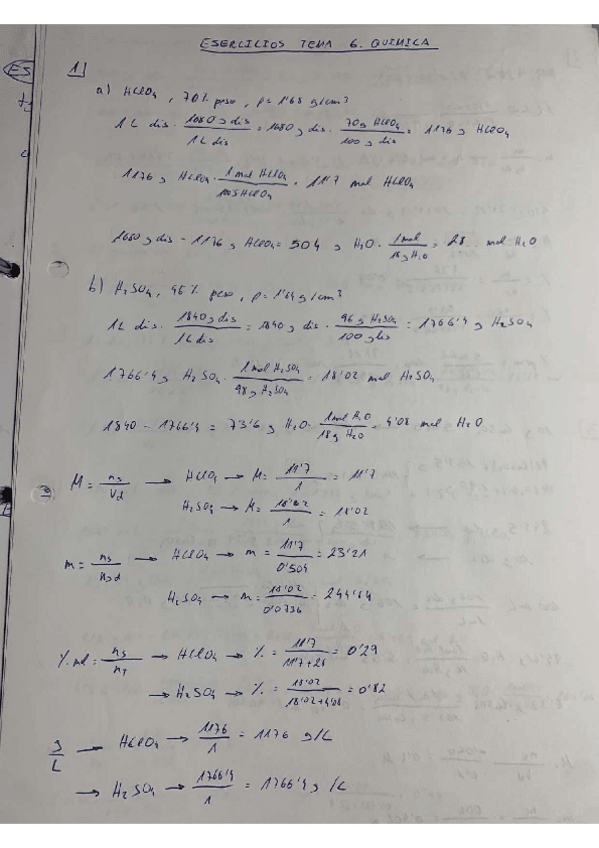 EJERCICIOS TEMA 6. QUÍMICA
1)
a) HClO4, 70% peso, ρ = 1'68 g/cm³
1 L dis · 1680 g dis / 1 L dis = 1680 g dis · 70 g HClO4 / 100 g dis = 1176 g HClO4
1176 g HClO4 · 1 mol HClO4 / 100'5 HClO4 = 11'7 mol HClO4
1680 g dis - 1176 g HClO4 = 504 g H2O · 1 mol / 18 g H2O = 28 mol H2O
b) H2SO4, 96% peso, ρ = 1'84 g/cm³
1L dis · 1840 g dis / 1L dis = 1840 g dis · 96 g H2SO4 / 100 g dis = 1766'4 g H2SO4
1766'4 g H2SO4 · 1 mol H2SO4 / 98 g H2SO4 = 18'02 mol H2SO4
1840 - 1766'4 = 73'6 g H2O · 1 mol H2O / 18 g H2O = 4'08 mol H2O
M = ns / Vd → HClO4 → M = 11'7 / 1 = 11'7
H2SO4 → M = 18'02 / 1 = 18'02
m = ns / → HClO4 → m = 11'7 / 0'504 = 23'21
H2SO4 → m = 18'02 / 0'0736 = 244'84
% mol = ns / nT → HClO4 → % = 11'7 / 11'7+28 = 0'29
→ H2SO4 → % = 18'02 / 18'02+4'08 = 0'82
g / L → HClO4 → 1176 / 1 = 1176 g/L
→ H2SO4 → 1766'4 / 1 = 1766'4 g/L